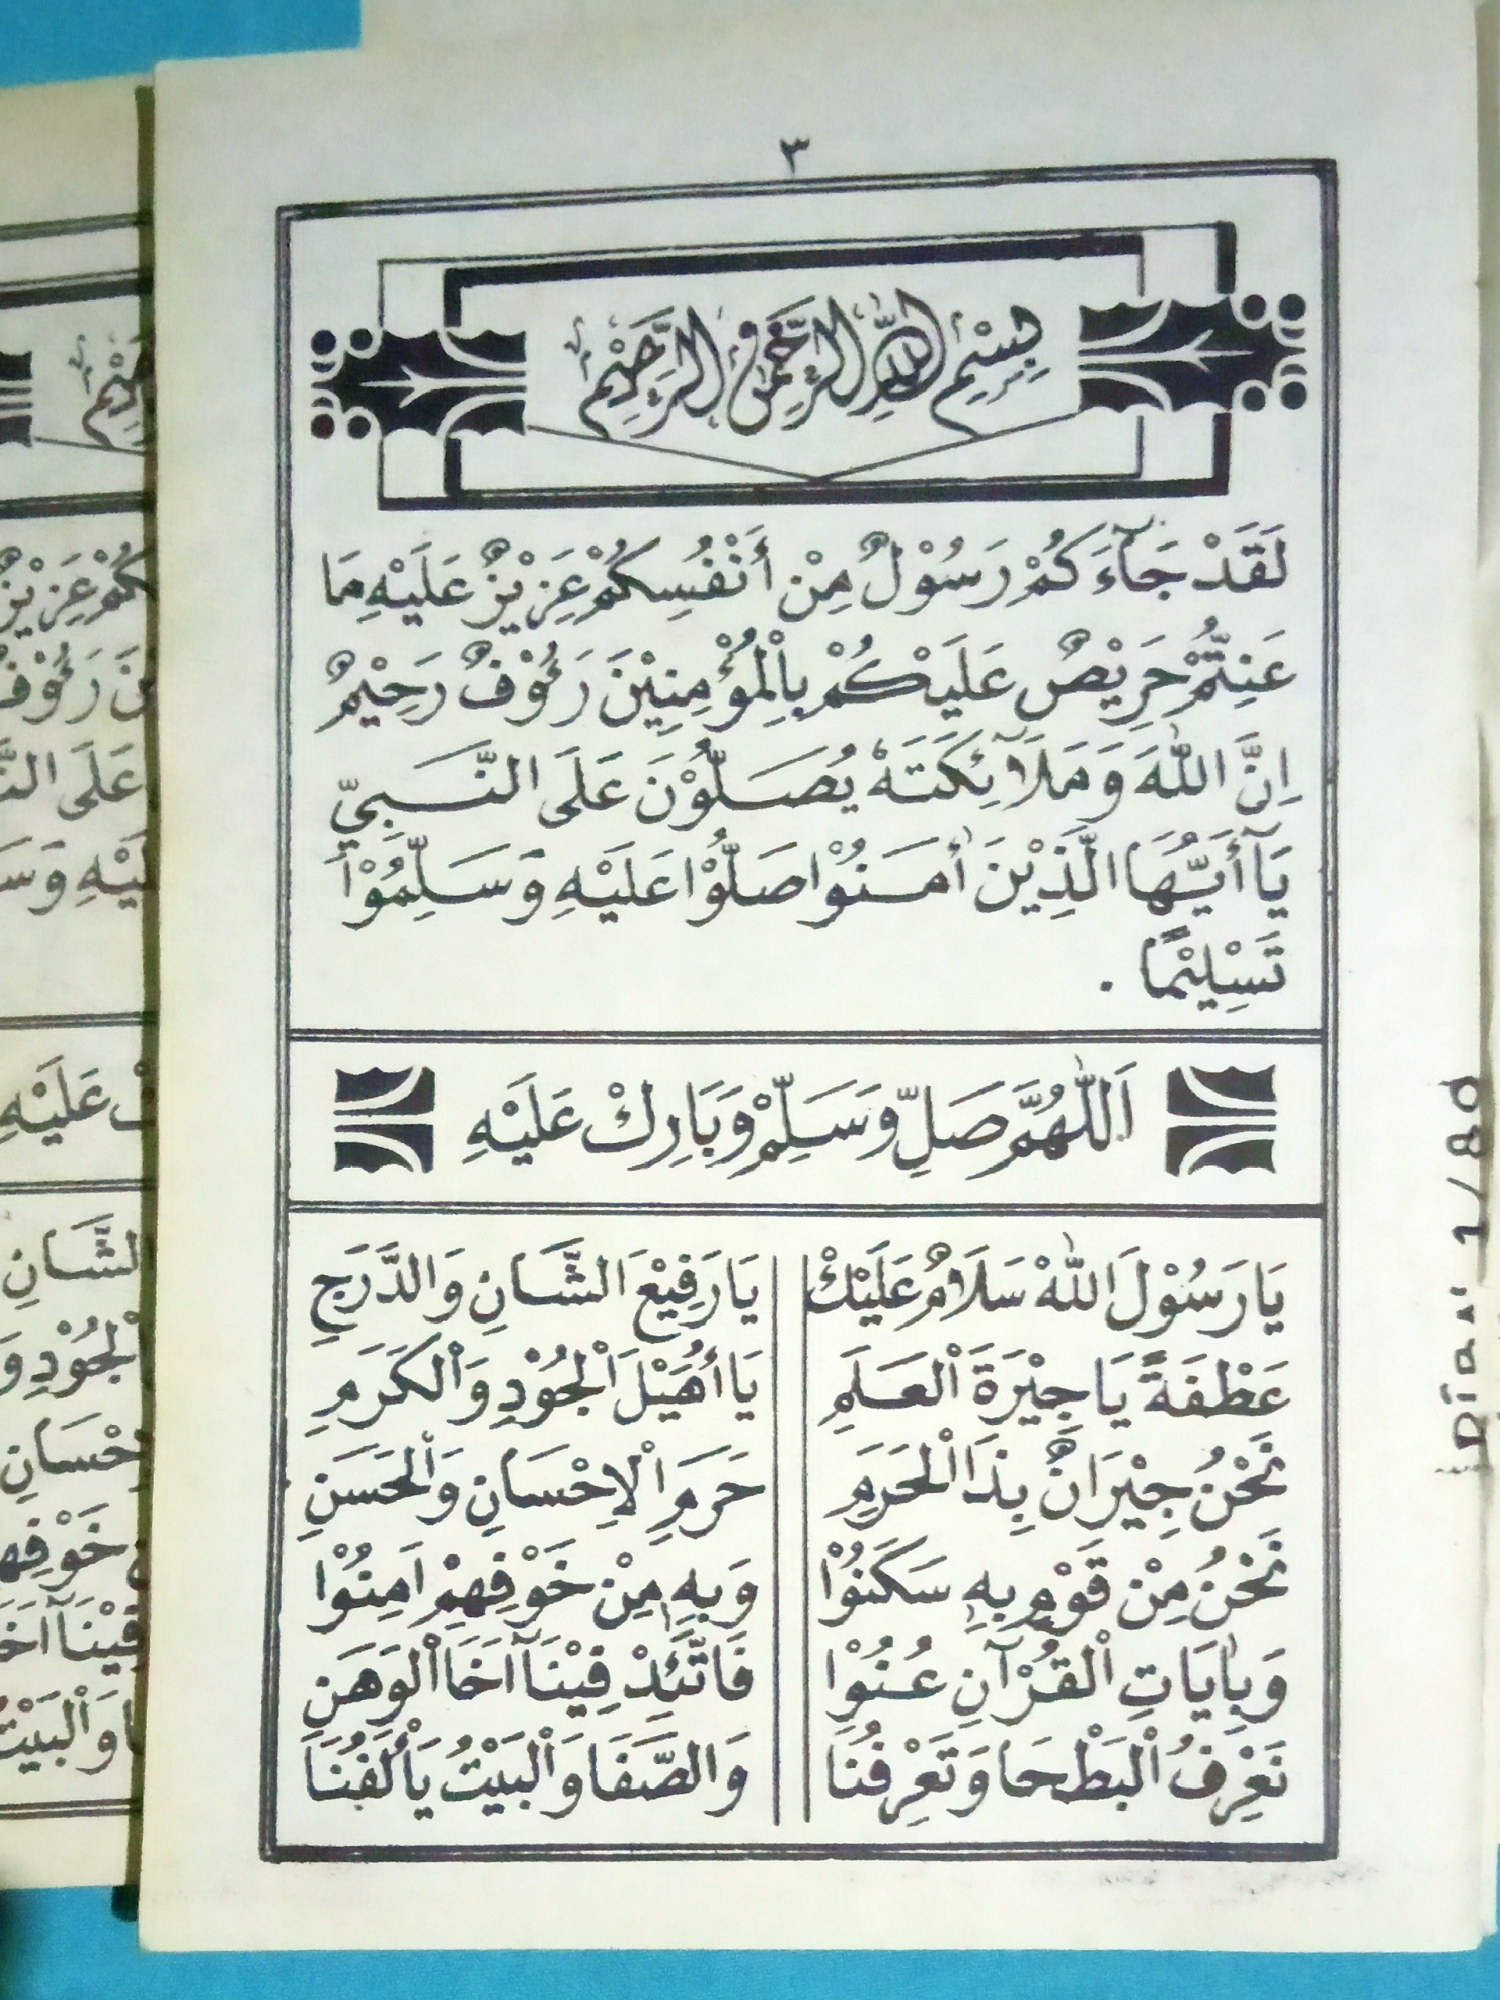 ٣
بِسْمِ اللّٰهِ الرَّحْمٰنِ الرَّحِيْمِ
لَقَدْ جَآءَكُمْ رَسُوْلٌ مِنْ أَنْفُسِكُمْ عَزِيْزٌ عَلَيْهِ مَا
عَنِتُّمْ حَرِيْصٌ عَلَيْكُمْ بِالْمُؤْمِنِيْنَ رَءُوْفٌ رَحِيْمٌ
اِنَّ اللّٰهَ وَمَلَآئِكَتَهٗ يُصَلُّوْنَ عَلَى النَّبِيِّ
يَآأَيُّهَا الَّذِيْنَ أٰمَنُوْا صَلُّوْا عَلَيْهِ وَسَلِّمُوْا
تَسْلِيْمًا .
اَللّٰهُمَّ صَلِّ وَسَلِّمْ وَبَارِكْ عَلَيْهِ
يَارَسُوْلَ اللّٰهْ سَلَامٌ عَلَيْكْ يَارَفِيْعَ الشَّانِ وَالدَّرَجِ
عَطْفَةً يَاجِيْرَةَ الْعَلَمِ يَاأُهَيْلَ الْجُوْدِ وَالْكَرَمِ
نَحْنُ جِيْرَانٌ بِذَا الْحَرَمِ حَرَمِ الْاِحْسَانِ وَالْحَسَنِ
نَحْنُ مِنْ قَوْمٍ بِهٖ سَكَنُوْا وَبِهٖ مِنْ خَوْفِهِمْ اَمِنُوْا
وَبِاٰيَاتِ الْقُرْآنِ عُنُوْا فَاتَّئِدْ فِيْنَآ اَخَا الْوَهَنِ
نَعْرِفُ الْبَطْحَا وَتَعْرِفُنَا وَالصَّفَا وَالْبَيْتُ يَأْلَفُنَا